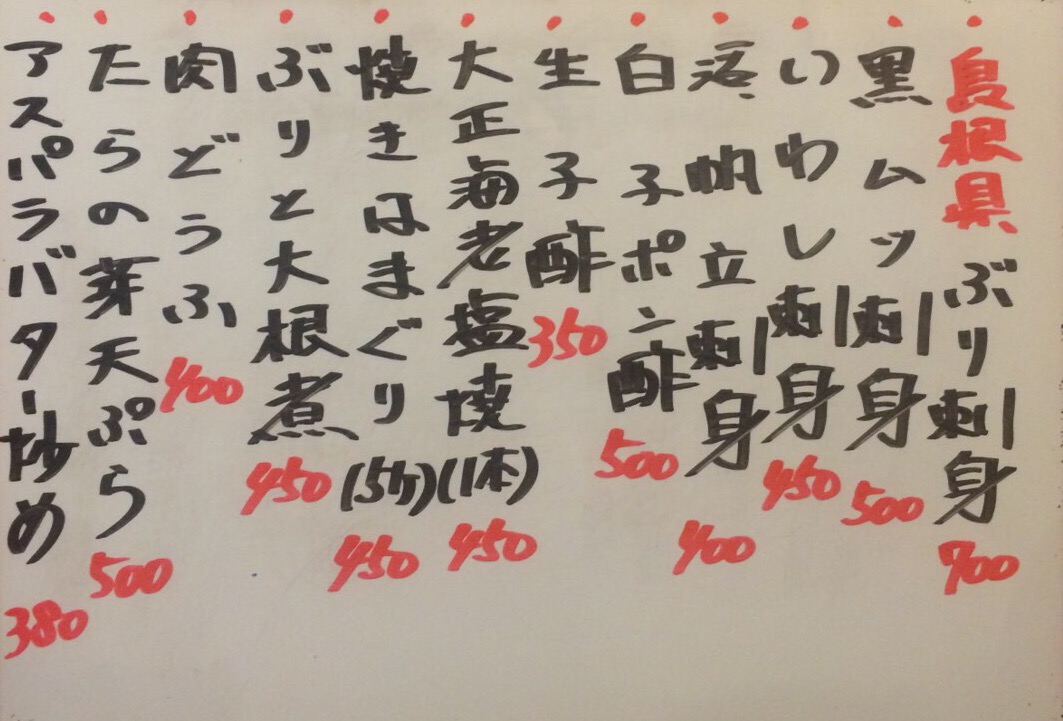 島根県ぶり刺身 700
黒ムツ刺身 500
いわし刺身 450
活帆立刺身 400
白子ポン酢 500
生子酢 350
大正海老塩焼(1本) 450
焼きはまぐり(5ケ) 450
ぶりと大根煮 450
肉どうふ 400
たらの芽天ぷら 500
アスパラバター炒め 380